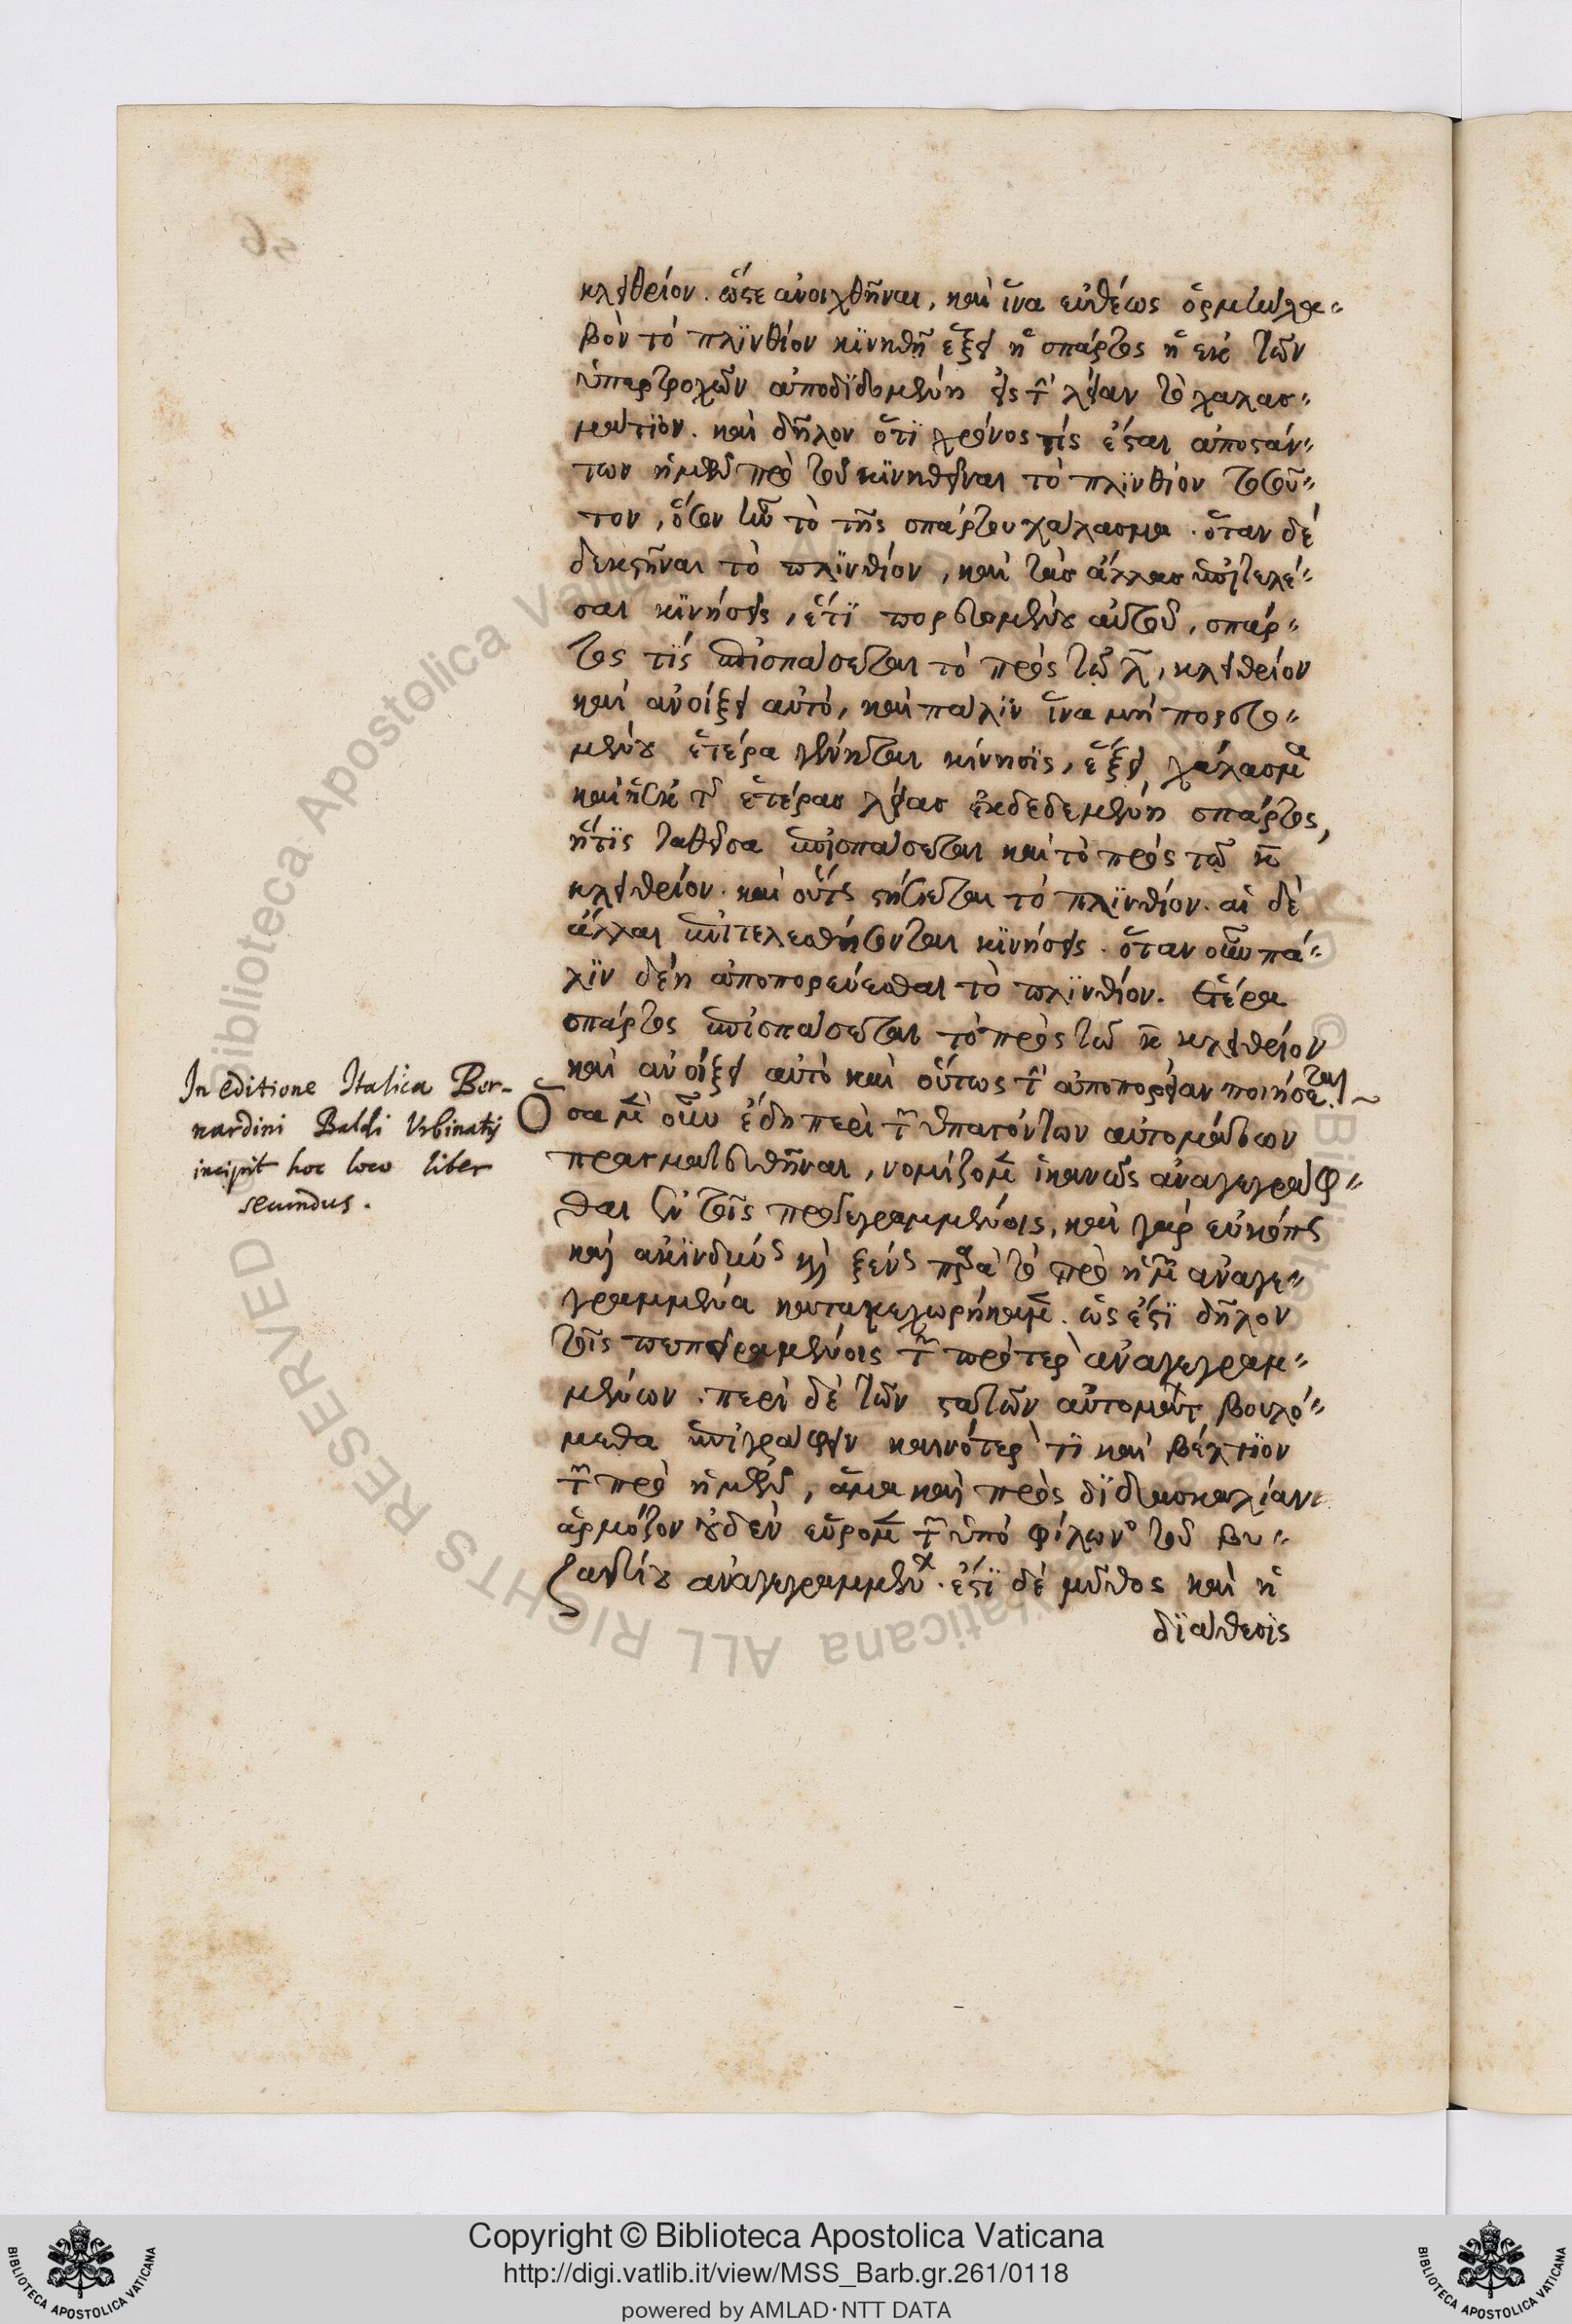 κλειθρίον. ὥστε ἀνοιχθῆναι, καὶ ἵνα εὐθέως ὁρμὴν λα-
βὸν τὸ πλϊνθίον κϊνηθῇ ἕξει ἡ σπάρτος ἡ ἐκ τῶν
ὑπερτροχῶν ἀποδϊδομένη εἰς τὴν λείαν τὸ χαλασ-
μάτϊον. καὶ δῆλον ὅτϊ χρόνος τίς ἔσται ἀποστάν-
των ἡμῶν πρὸ τοῦ κϊνηθῆναι τὸ πλϊνθίον τοσοῦ-
τον, ὅσον ἦν τὸ τῆς σπάρτου χάλασμα. ὅταν δέ
δεῖ στῆναι τὸ πλϊνθίον, καὶ τὰσ ἄλλασ ἐπιτελέ-
σαι κϊνήσεις, ἔτϊ πορευομένου αὐτοῦ, σπάρ-
τος τϊς ἐπισπάσεται τὸ πρὸς τῷ λ, κλειθρίον
καὶ ἀνοίξει αὐτό, καὶ πάλϊν ἵνα μὴ πορευο-
μένου ἑτέρα γένηται κίνησϊς, ἕξει χάλασμα
καὶ ἡ ἐκ τῆς ἑτέρασ λείασ ἐκδεδεμένη σπάρτος,
ἥτϊς ταθεῖσα ἐπισπάσεται καὶ τὸ πρὸς τῷ κ
κλειθρίον. καὶ οὕτως στήσεται τὸ πλϊνθίον. αἱ δὲ
ἄλλαι ἐπιτελεσθήσονται κϊνήσεις. ὅταν οὖν πά-
λϊν δέῃ ἀποπορεύεσθαι τὸ πλϊνθίον. ἑτέρα
σπάρτος ἐπισπάσεται τὸ πρὸς τῷ κ κλειθρίον
καὶ ἀνοίξει αὐτὸ καὶ οὕτως τὴν ἀποπορείαν ποιήσεται ~
Ὅσα μὲν οὖν ἔδη περὶ τῶν ὑπαγόντων αὐτομάτων
πραγματευθῆναι, νομίζομεν ἱκανῶς ἀναγεγράφ-
θαι ἐν τοῖς προγεγραμμένοις, καὶ γὰρ εὐκόπως
καὶ ἀκϊνδύνως καὶ ξένως παρὰ τὰ πρὸ ἡμῶν ἀναγε-
γραμμένα κατακεχωρήκαμεν. ὡς ἔστϊ δῆλον
τοῖς πεπειραμένοις τῶν πρότερον ἀναγεγραμ-
μένων. περὶ δὲ τῶν στατῶν αὐτομάτων βουλό-
μεθα ἐπιγράφειν καινότερόν τϊ καὶ βέλτϊον
τῶν πρὸ ἡμῶν, ἅμα καὶ πρὸς δϊδασκαλίαν
ἁρμόζον οὐδὲν εὕρομεν τῶν ὑπὸ φίλωνος τοῦ Βυ-
ζαντίου ἀναγεγραμμένων. ἔστϊ δὲ μῦθος καὶ ἡ
δϊάθεσϊς
In editione Italica Ber-
nardini Baldi Vrbinatis
incipit hoc loco liber
secundus.
Copyright © Biblioteca Apostolica Vaticana
http://digi.vatlib.it/view/MSS_Barb.gr.261/0118
powered by AMLAD·NTT DATA
BIBLIOTECA APOSTOLICA VATICANA
BIBLIOTECA APOSTOLICA VATICANA